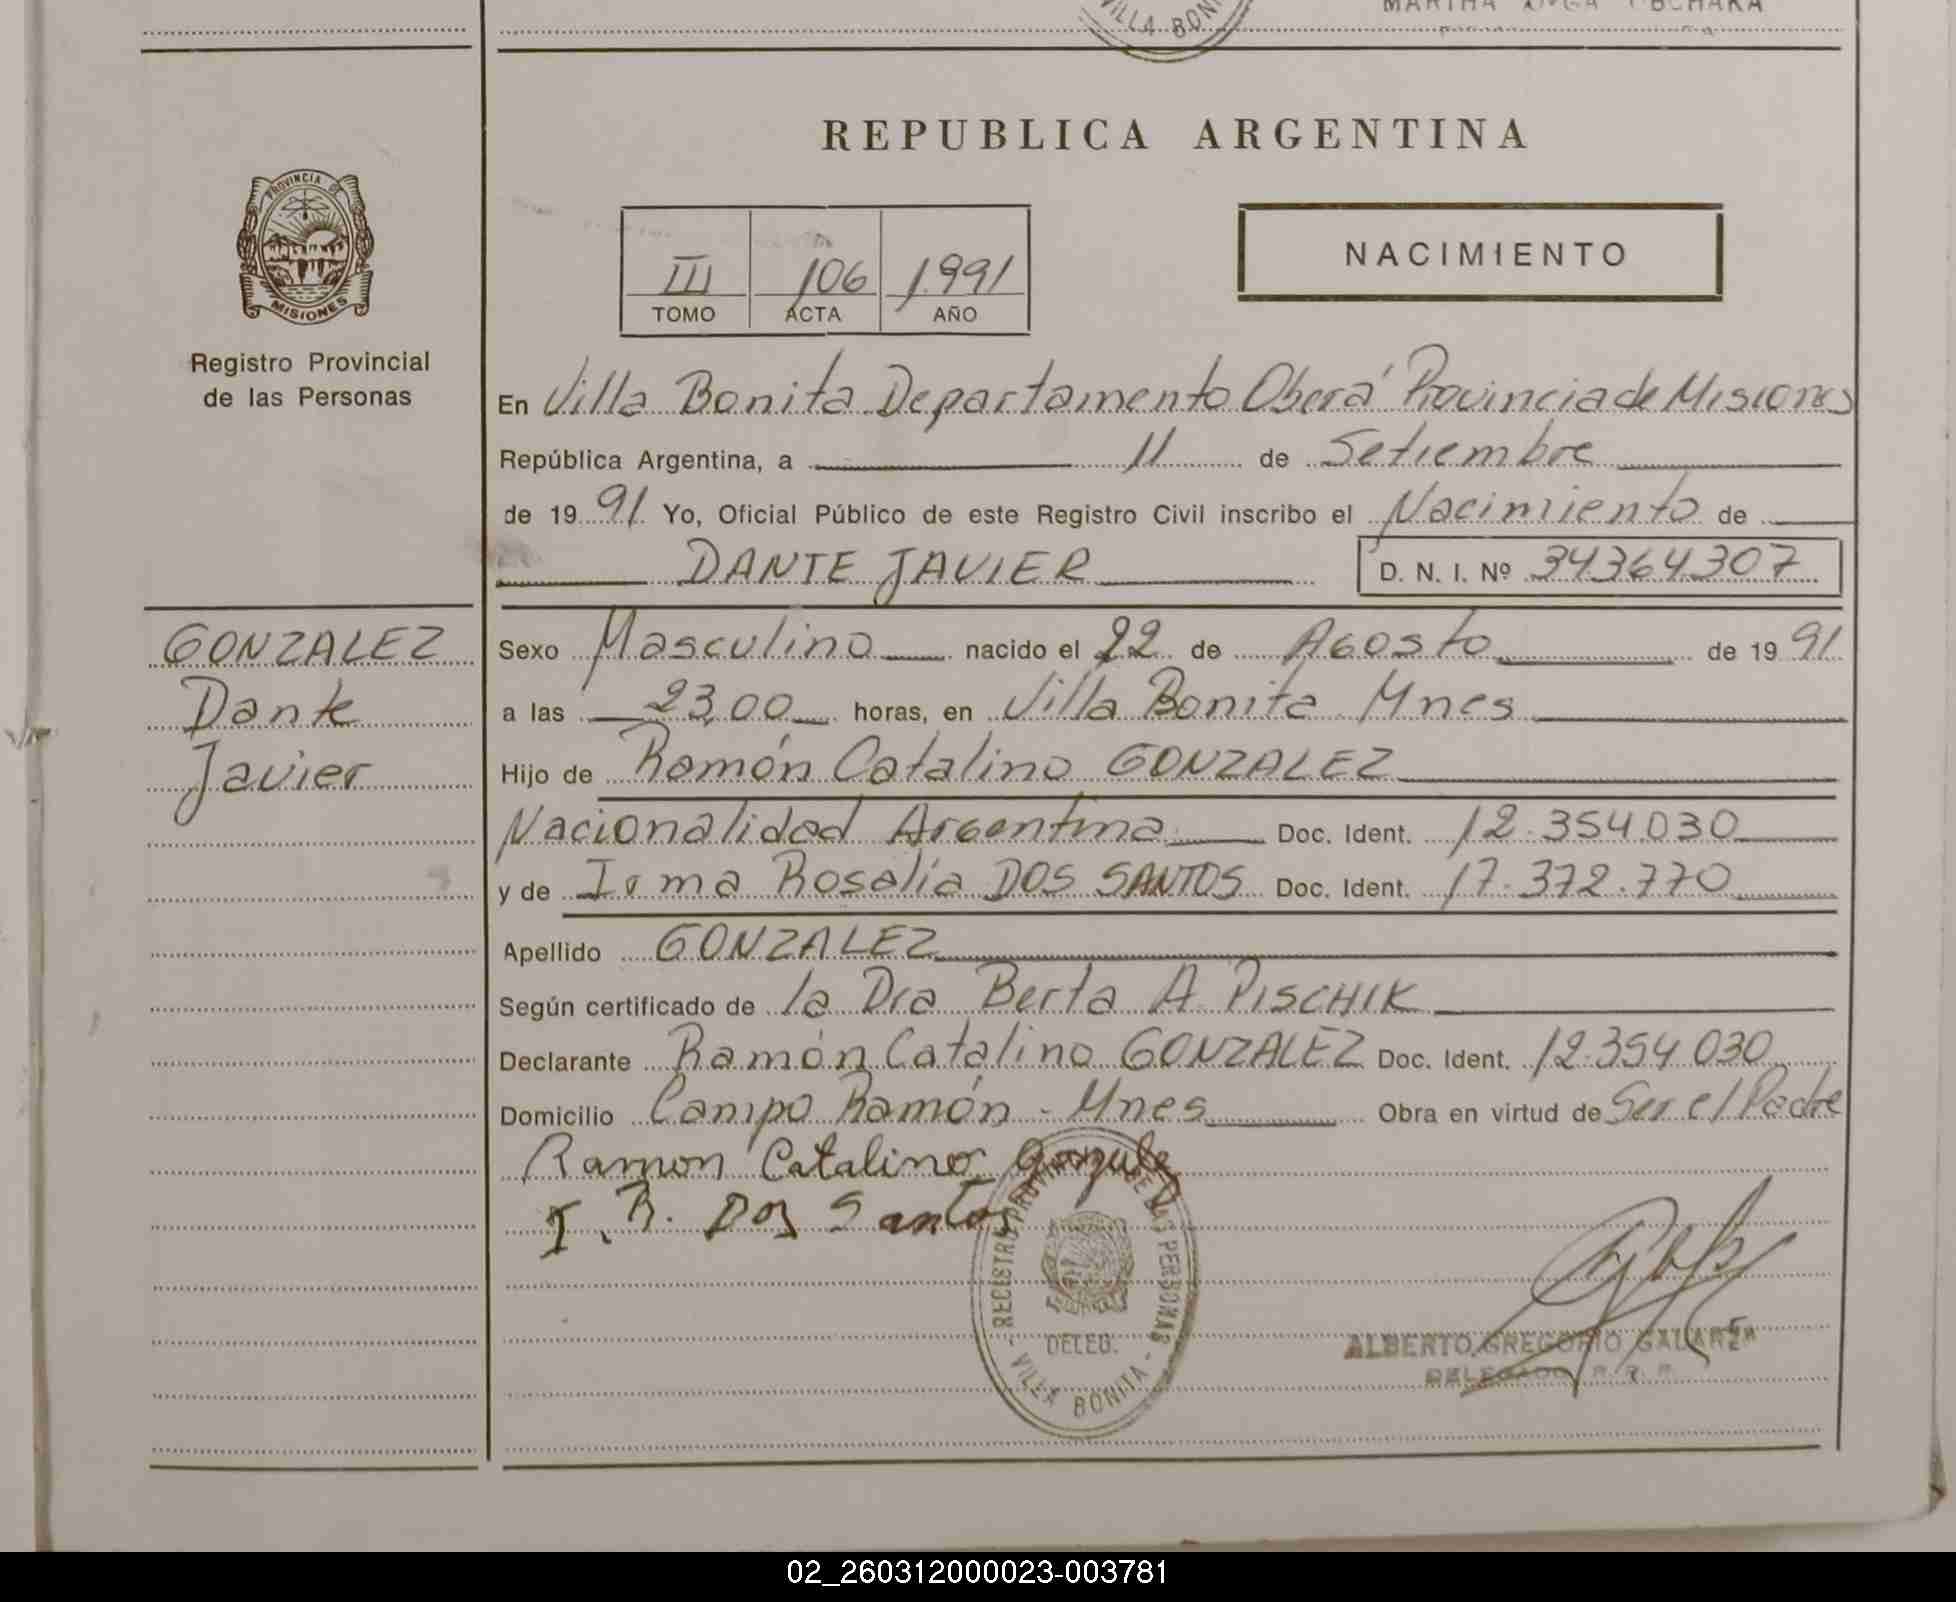 VILLA BONI
REPUBLICA ARGENTINA
PROVINCIA DE
MISIONES
Registro Provincial
de las Personas
III 106 1.991
TOMO ACTA AÑO
NACIMIENTO
En Villa Bonita Departamento Oberá Provincia de Misiones
República Argentina, a 11 de Setiembre
de 19 91 Yo, Oficial Público de este Registro Civil inscribo el Nacimiento de
DANTE JAVIER D. N. I. Nº 34364307
GONZALEZ
Dante
Javier
Sexo Masculino nacido el 22 de Agosto de 19 91
a las 23,00 horas, en Villa Bonita Mnes
Hijo de Ramón Catalino GONZALEZ
Nacionalidad Argentina Doc. Ident. 12.354.030
y de Irma Rosalia DOS SANTOS Doc. Ident. 17.372.770
Apellido GONZALEZ
Según certificado de la Dra Berta A. PISCHIK
Declarante Ramón Catalino GONZALEZ Doc. Ident. 12.354.030
Domicilio Campo Ramón - Mnes Obra en virtud de Ser el Padre
Ramon Catalino Gonzalez
I. R. Dos Santos
REGISTRO PROVINCIAL DE LAS PERSONAS
DELEG.
- VILLA BONITA -
ALBERTO GREGORIO GALARZA
DELEGADO R. P. P.
02_260312000023-003781